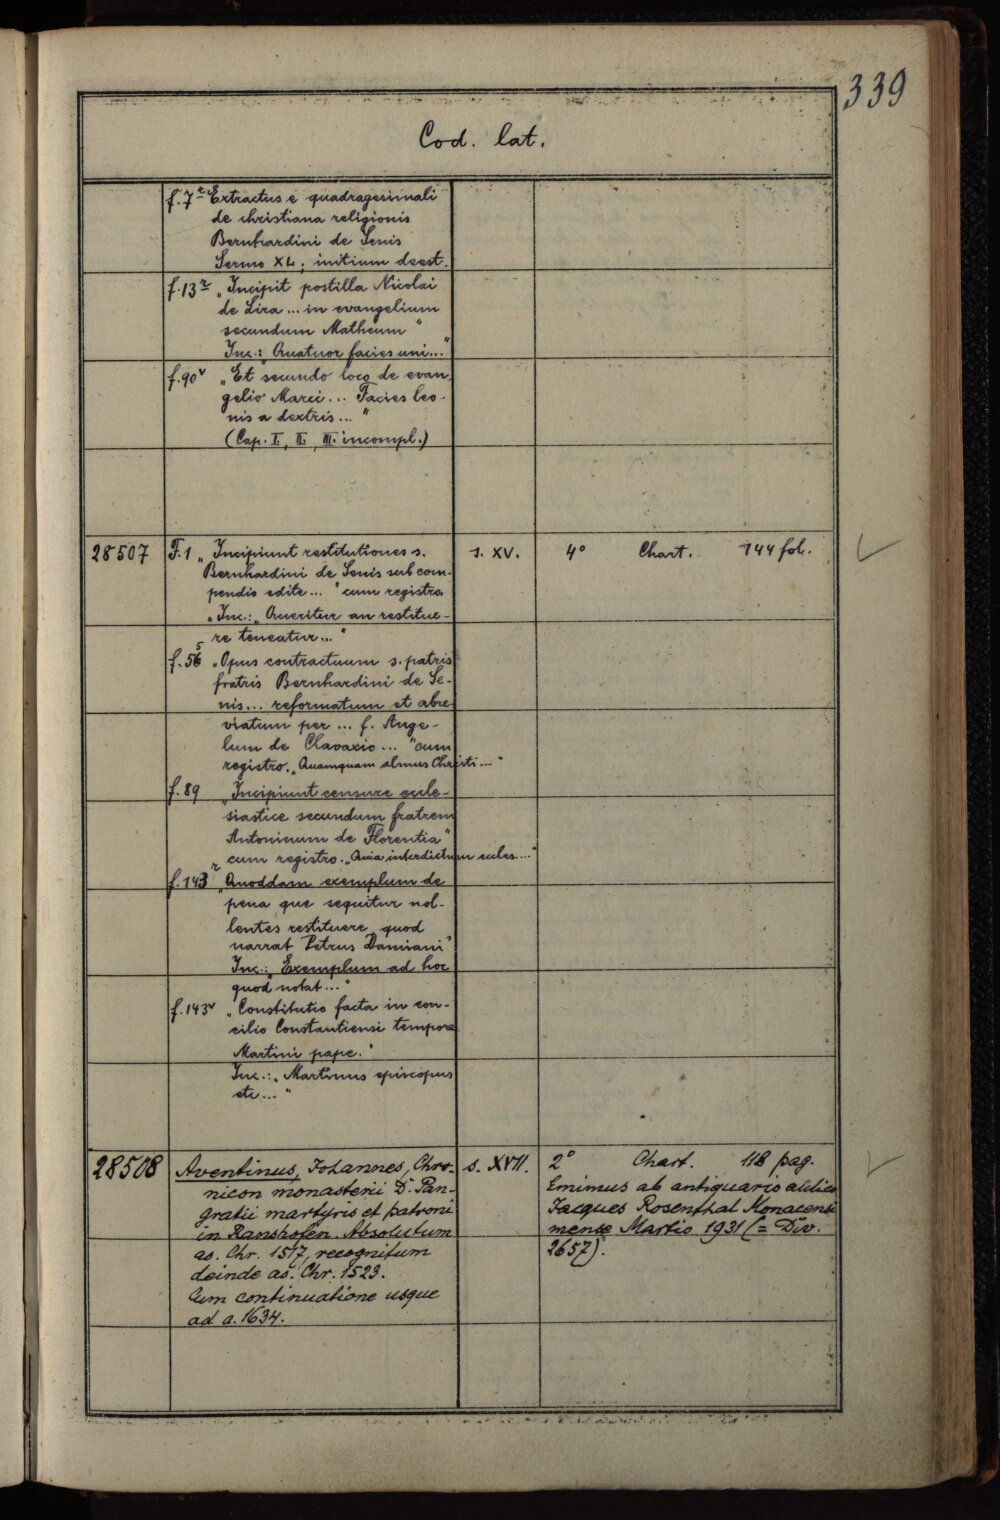 339
Cod. lat.
f. 7r Extractus e quadragesimali
de christiana religionis
Bernhardini de Senis
Sermo XL; initium deest.
f. 13r „Incipit postilla Nicolai
de Lira ... in evangelium
secundum Matheum“
Inc.: „Quatuor facies uni...“
f. 90v „Et secundo loco de evan-
gelio Marci ... Facies leo-
nis a dextris ...“
(Cap. I, II, III incompl.)
28507 F. 1 „Incipiunt restitutiones s. s. XV. 4° Chart. 144 fol.
Bernhardini de Senis sub com-
pendio edite ...“ cum registro
„Inc.: „Queritur an restitue-
re teneatur ...“
f. 55 „Opus contractuum s. patris
fratris Bernhardini de Se-
nis ... reformatum et abre-
viatum per ... f. Ange-
lum de Clavaxio ...“ cum
registro. „Quamquam almus Christi ...“
f. 89 „Incipiunt censure eccle-
siastice secundum fratrem
Antoninum de Florentia“
cum registro. „Quia interdictum eccles....“
f. 143r „Quoddam exemplum de
pena que sequitur nol-
lentes restituere quod
narrat Petrus Damiani“
Inc.: „Exemplum ad hoc
quod notat ...“
f. 143v „Constitutio facta in con-
cilio Constantiensi tempore
Martini pape.“
Inc.: „Martinus episcopus
etc ...“
28508 Aventinus, Johannes, Chro- s. XVII. 2° Chart. 118 pag.
nicon monasterii D. Pan- Emimus ab antiquario aulico
gratii martyris et patroni Jacques Rosenthal Monacensi
in Ranshofen. Absolutum mense Martio 1931 (= Div.
ao. Chr. 1517, recognitum 2657).
deinde ao. Chr. 1523.
Cum continuatione usque
ad a. 1634.